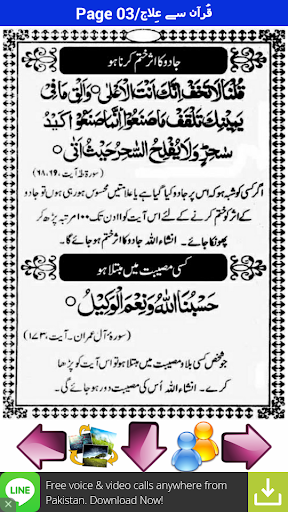 Page 03/قرآن سے علاج
جادو کا اثر ختم کرنا ہو
قُلْنَا لَا تَخَفْ اِنَّكَ اَنْتَ الْاَعْلٰى۝ وَاَلْقِ مَا فِىْ
يَمِيْنِكَ تَلْقَفْ مَا صَنَعُوْا اِنَّمَا صَنَعُوْا كَيْدُ
سٰحِرٍ وَلَا يُفْلِحُ السّٰحِرُ حَيْثُ اَتٰى۝
(سورۃ طٰہٰ آیت ۶۸،۶۹)
اگر کسی کو شبہ ہو کہ اس پر جادو کیا گیا ہے یا علامتیں محسوس ہو رہی ہوں تو جادو
کے اثر کو ختم کرنے کے لئے اس آیت کو ۱۱ دن تک ۱۰۰ مرتبہ پڑھ کر
پھونکا جائے۔ انشاءاللہ جادو کا اثر ختم ہو جائے گا۔
کسی مصیبت میں مبتلا ہو
حَسْبُنَا اللّٰهُ وَنِعْمَ الْوَكِيْلُ۝
(سورۃ آل عمران۔ آیت، ۱۷۳)
جو شخص کسی بلا و مصیبت میں مبتلا ہو تو اس آیت کو پڑھا
کرے۔ انشاءاللہ اُس کی مصیبت دور ہو جائے گی۔
LINE
Free voice & video calls anywhere from
Pakistan. Download Now!